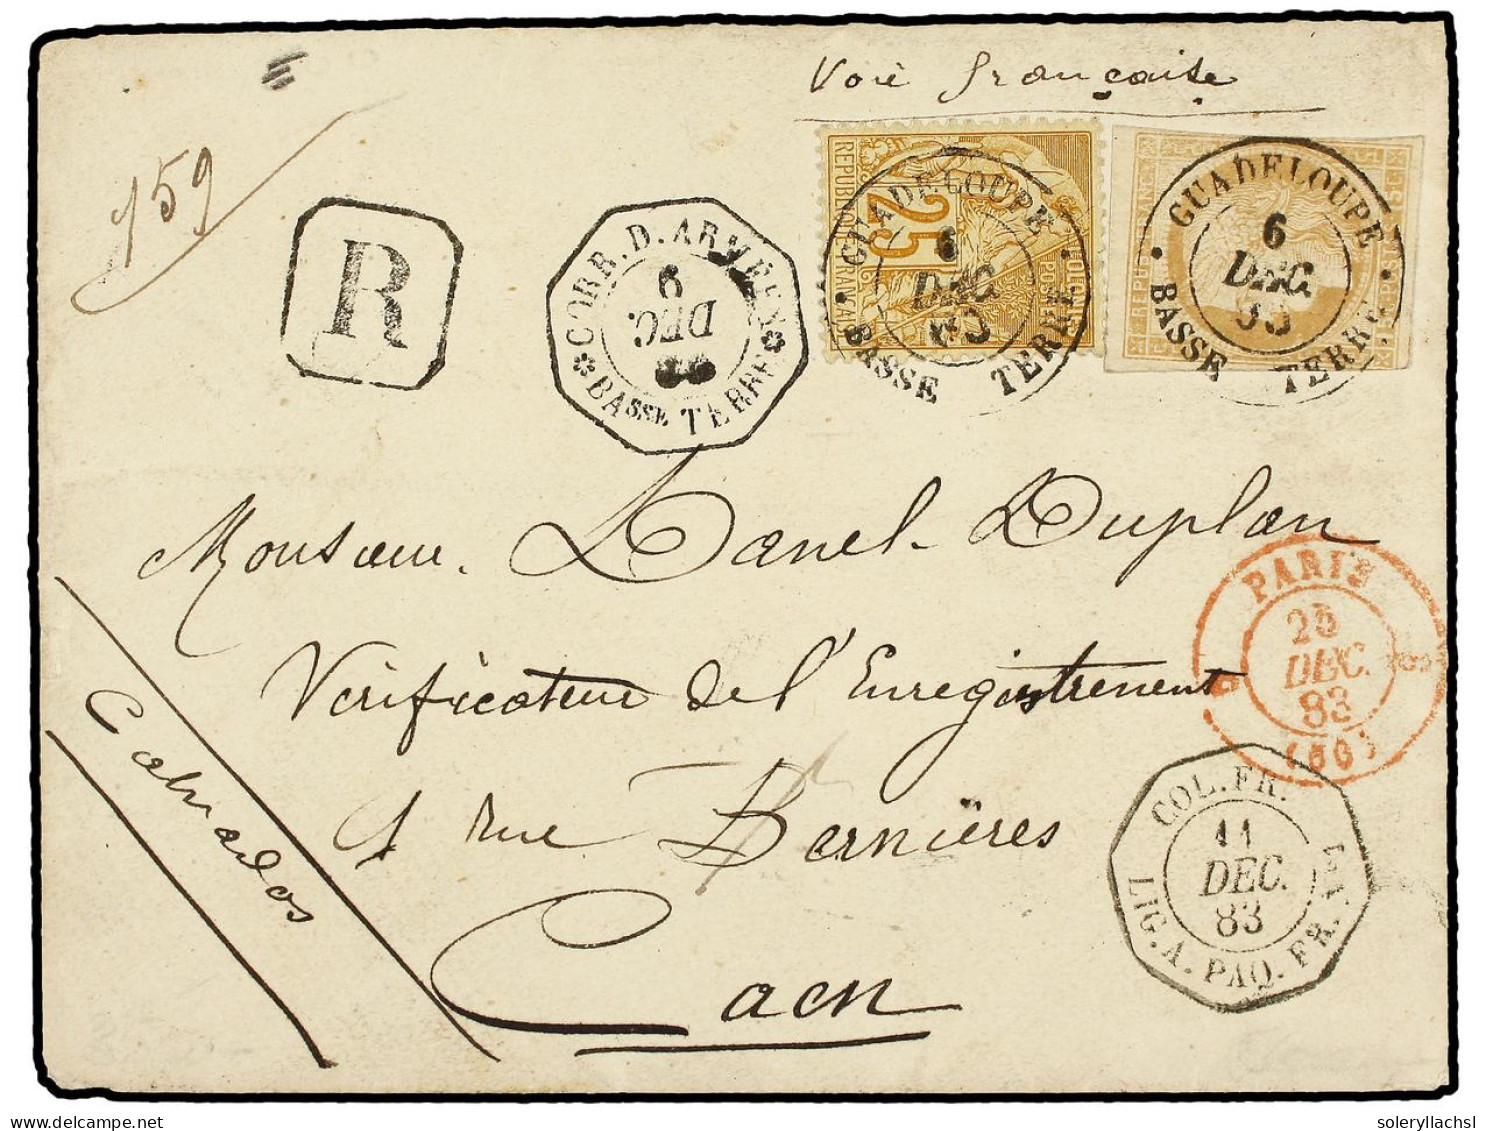 Voie française
159
R
CORR. D. ARMÉES
6
DEC.
BASSE TERRE
RÉPUBLIQUE FRANÇAISE
25
POSTES
GUADELOUPE
6
DEC.
BASSE TERRE
GUADELOUPE
6
DEC.
BASSE TERRE
Monsieur Danel-Duplan
Vérificateur de l'Enregistrement
1 rue Bernières
Caen
Calvados
PARIS
DEC.
83
(60)
COL. FR.
11
DEC.
83
LIG. A. PAQ. FR.
soleryllachsl